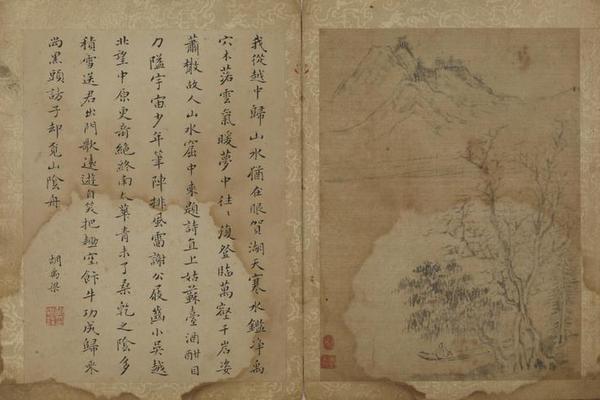 我從越中歸山水猶在眼賀湖天寒水鑑淨禹
穴木落雲氣暖夢中往〻復登臨萬壑千岩姿
蕭散故人山水窟中來題詩直上姑蘇臺酒酣目
力隘宇宙少年筆陣排風雷謝公屐齒小吳越
北望中原更奇絕終南太華青未了桑乾之陰多
積雪送君出門歌遠遊自笑把鋤空飯牛功成歸來
尚黑頭訪子却覓山陰舟
胡 梁